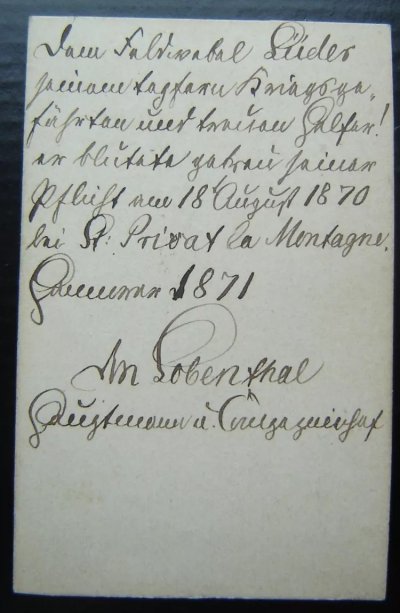 Dem Feldwebel Lüder
seinem tapfern Kriegsge-
fährten und treuen Helfer!
er blutete getreu seiner
Pflicht am 18 August 1870
bei St: Privat la Montagne.
Hannover 1871
Lobenthal
Hauptmann u. Compagniechef